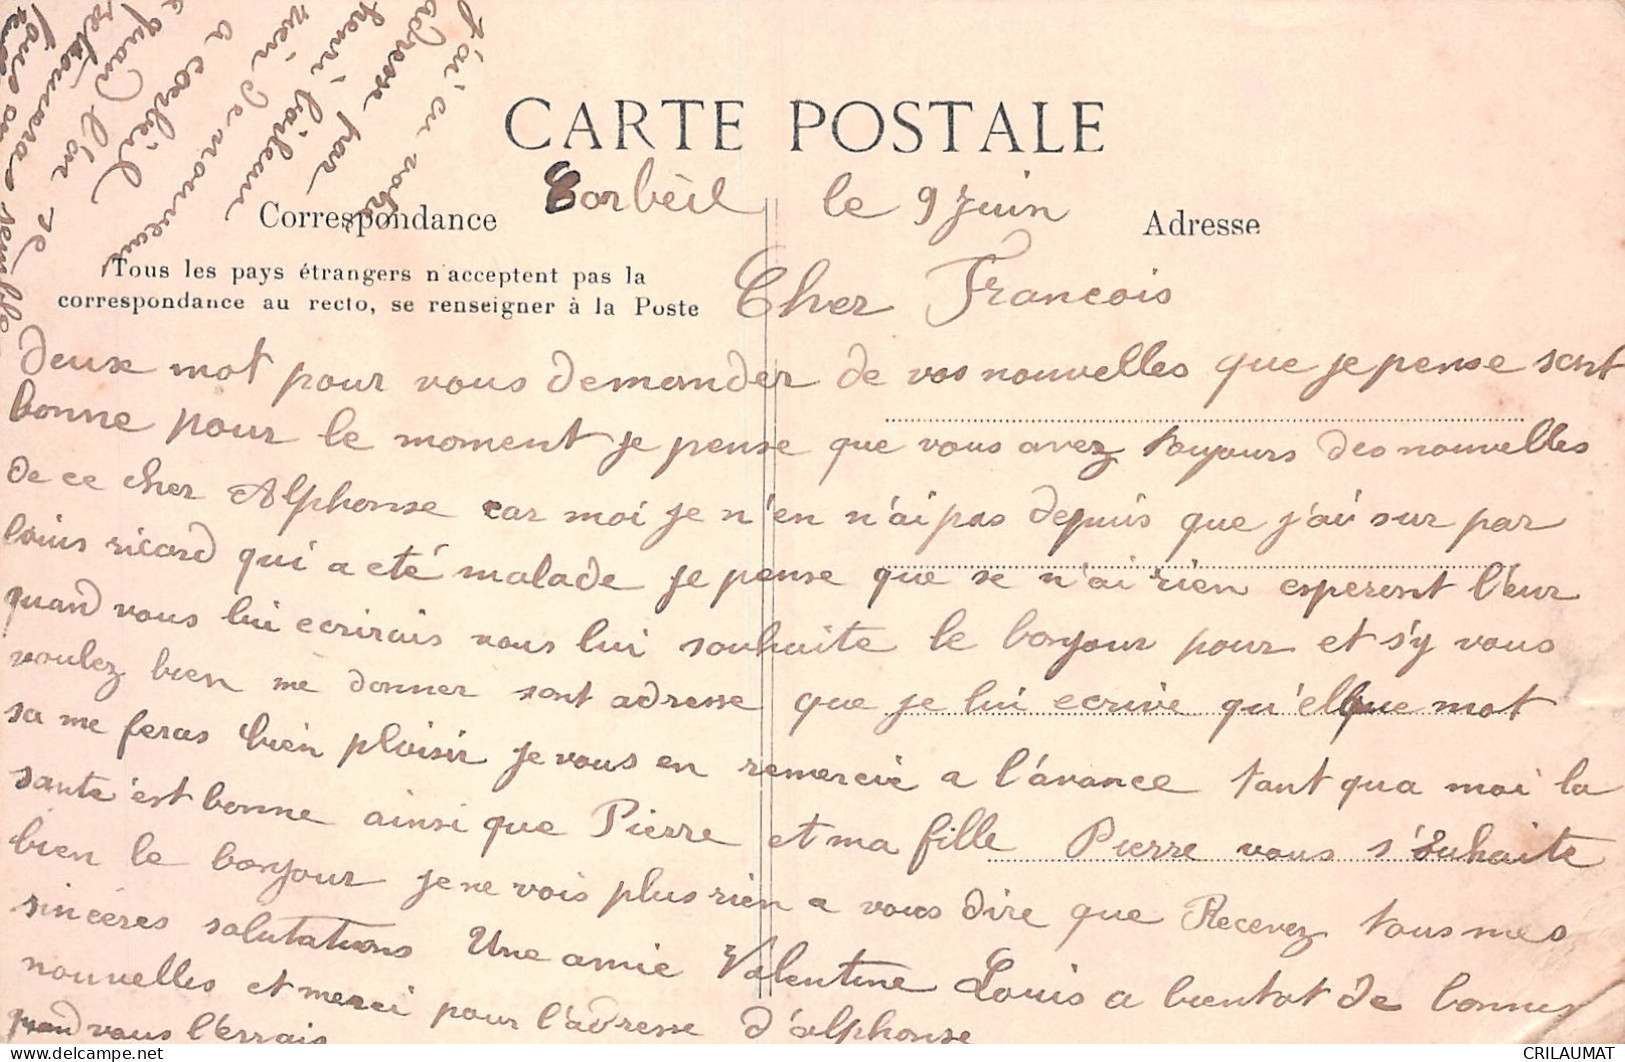 CARTE POSTALE
Corbèil le 9 Juin
Correspondance
Adresse
Tous les pays étrangers n'acceptent pas la
correspondance au recto, se renseigner à la Poste
Cher Francois
deux mot pour vous demander de vos nouvelles que je pense sont
bonne pour le moment je pense que vous avez toujours des nouvelles
de ce cher Alphonse car moi je n'en n'ai pas depuis que j'ai sur par
louis ricard qui a eté malade je pense que se n'ai rien esperont l'eur
quand vous lui ecrirais vous lui souhaite le bonjour pour et s'y vous
voulez bien me donner sont adresse que je lui ecrive qu'elque mot
sa me feras bien plaisir je vous en remercie a l'avance tant qua moi la
sante est bonne ainsi que Pierre et ma fille Pierre vous souhaite
bien le bonjour je ne vois plus rien a vous dire que Recevez tous mes
sincéres salutations Une amie Valentine Louis a bientot de bonnes
nouvelles et merci pour l'adresse d'alphonse
quand vous l'errais
J'ai eu votre
adresse par
henri
rien de nouveau
a corbeil
quand l'on se
retrouvera
tous ensemble
CRILAUMAT